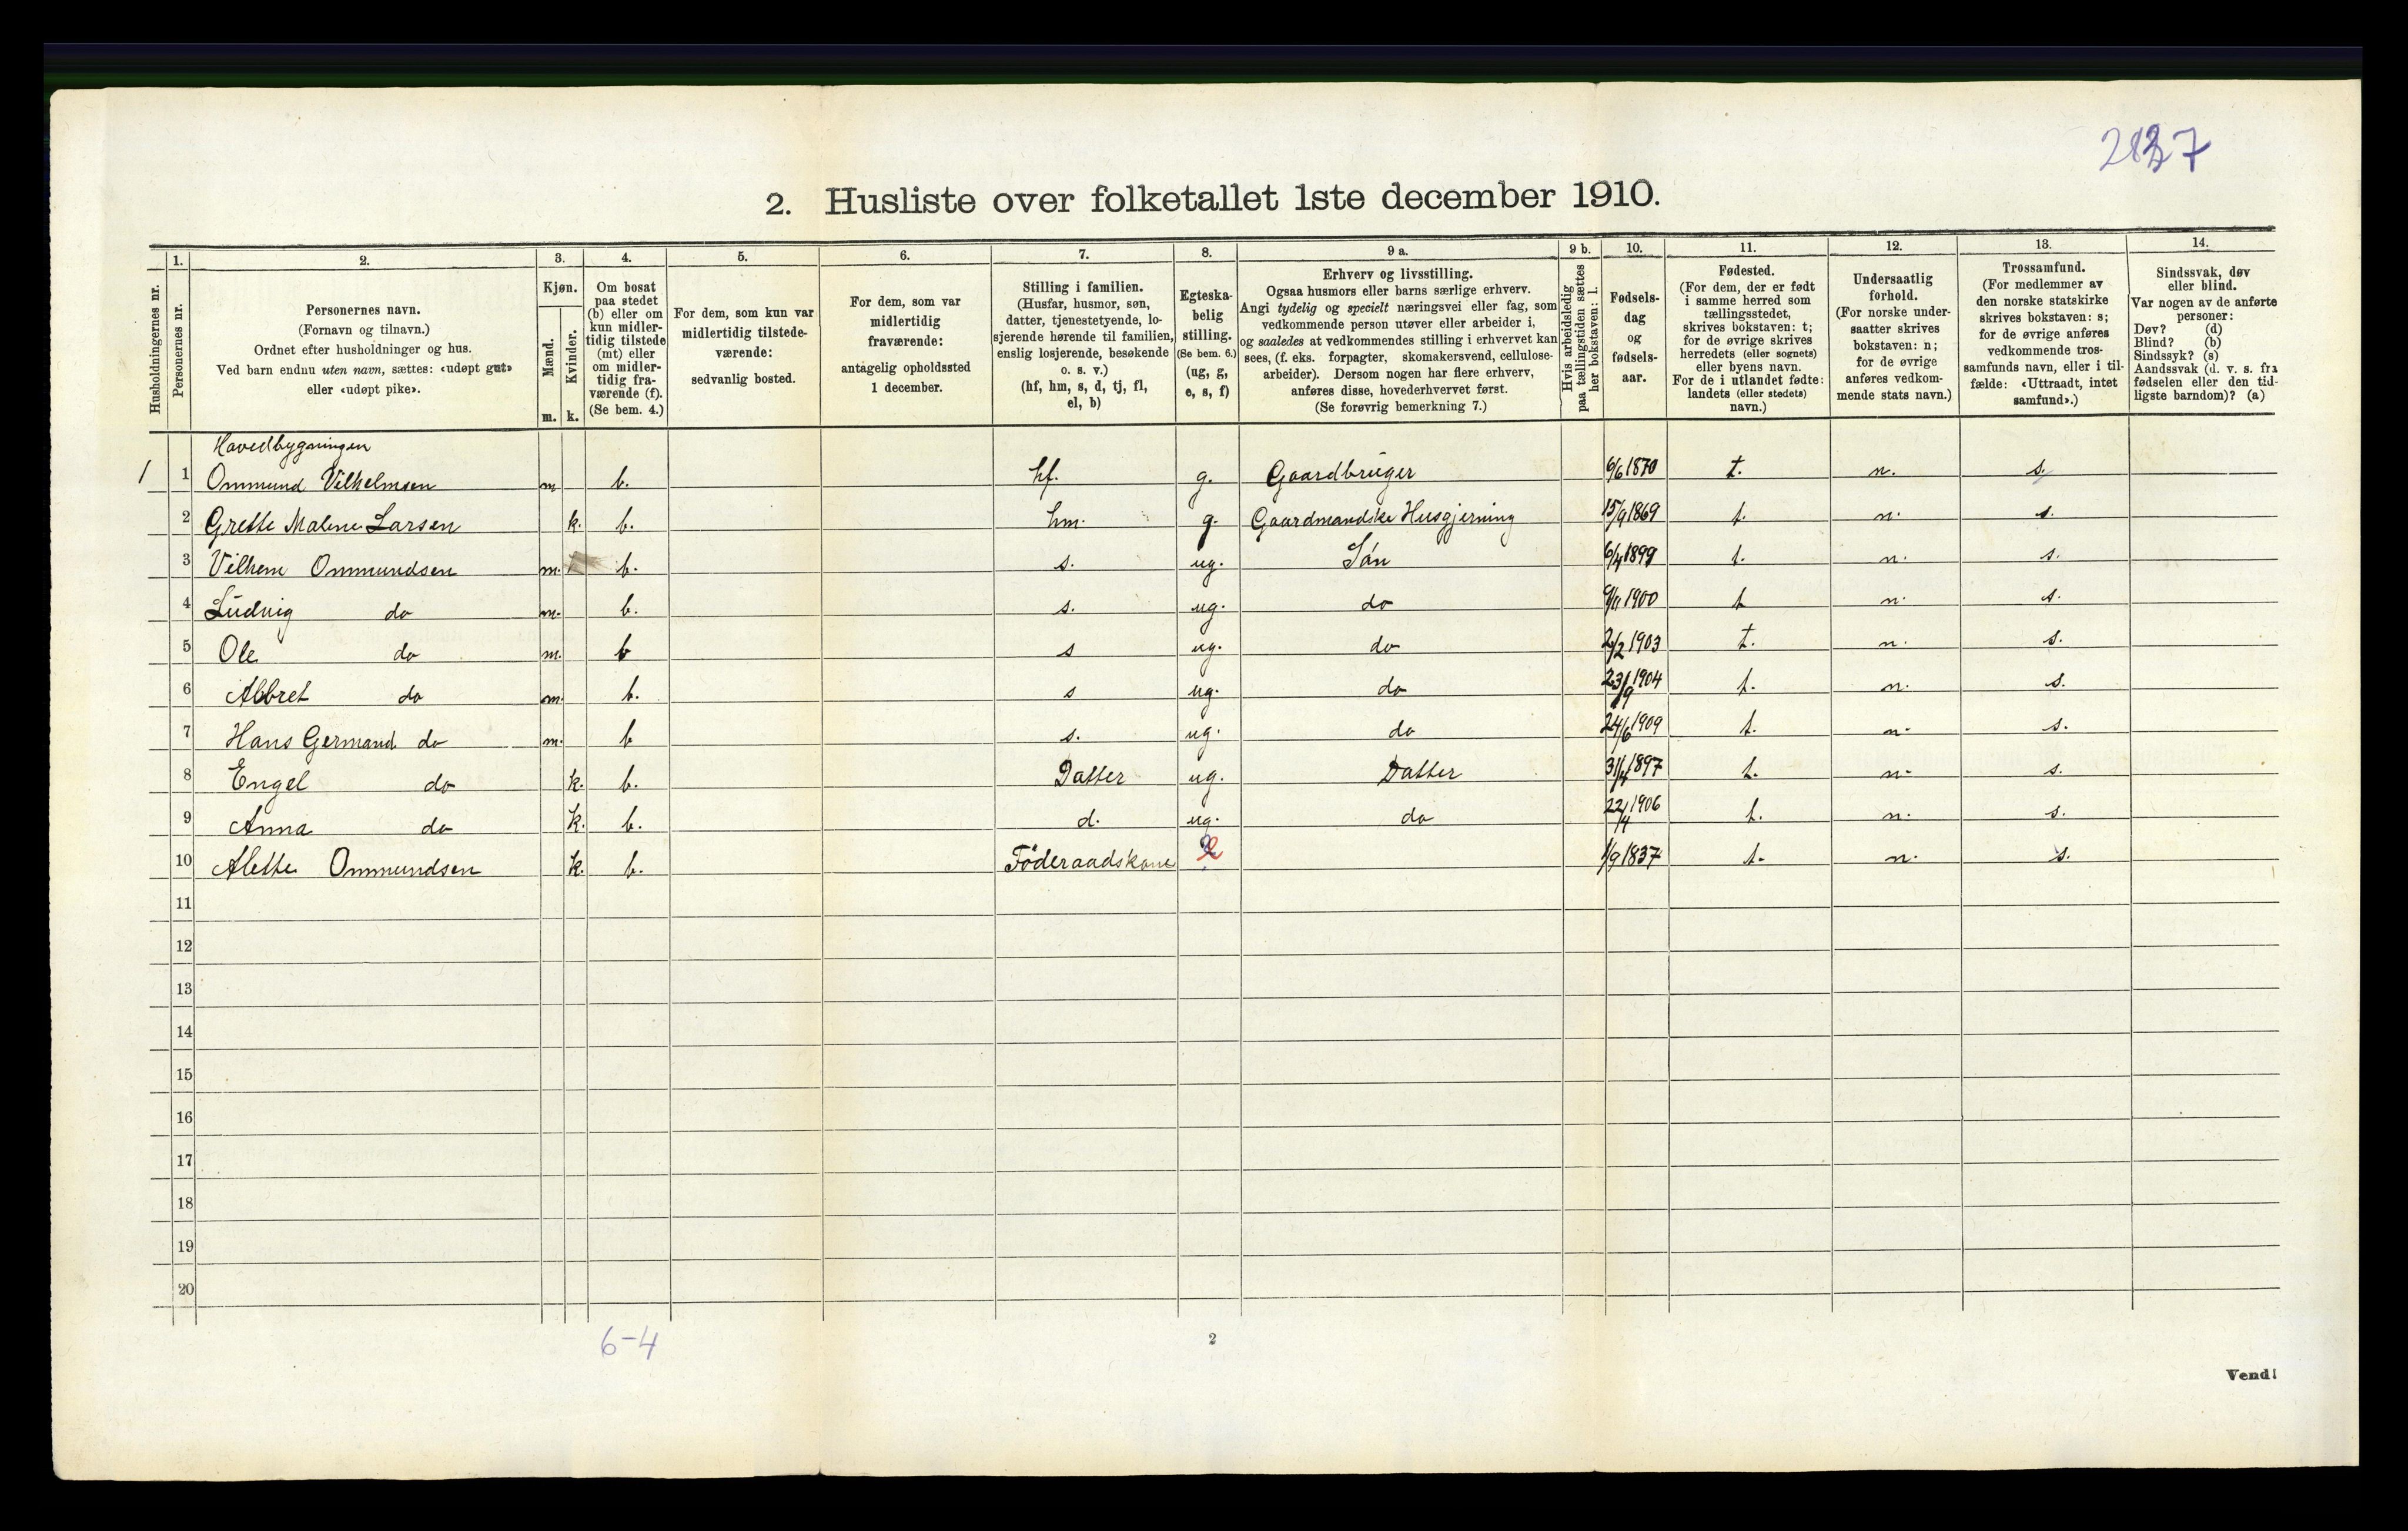 2837
2. Husliste over folketallet 1ste december 1910.
Husholdningernes nr.
1.
Personernes nr.
2.
Personernes navn.
(Fornavn og tilnavn.)
Ordnet efter husholdninger og hus.
Ved barn endnu uten navn, sættes: «udøpt gut»
eller «udøpt pike».
3.
Kjøn.
Mænd.
m.
Kvinder.
k.
4.
Om bosat
paa stedet
(b) eller om
kun midler-
tidig tilstede
(mt) eller
om midler-
tidig fra-
værende (f).
(Se bem. 4.)
5.
For dem, som kun var
midlertidig tilstede-
værende:
sedvanlig bosted.
6.
For dem, som var
midlertidig
fraværende:
antagelig opholdssted
1 december.
7.
Stilling i familien.
(Husfar, husmor, søn,
datter, tjenestetyende, lo-
sjerende hørende til familien,
enslig losjerende, besøkende
o. s. v.)
(hf, hm, s, d, tj, fl,
el, b)
8.
Egteska-
belig
stilling.
(Se bem. 6.)
(ug, g,
e, s, f)
9 a.
Erhverv og livsstilling.
Ogsaa husmors eller barns særlige erhverv.
Angi tydelig og specielt næringsvei eller fag, som
vedkommende person utøver eller arbeider i,
og saaledes at vedkommendes stilling i erhvervet kan
sees, (f. eks. forpagter, skomakersvend, cellulose-
arbeider). Dersom nogen har flere erhverv,
anføres disse, hovederhvervet først.
(Se forøvrig bemerkning 7.)
9 b.
Hvis arbeidsledig
paa tællingstiden sættes
her bokstaven: l.
10.
Fødsels-
dag
og
fødsels-
aar.
11.
Fødested.
(For dem, der er født
i samme herred som
tællingsstedet,
skrives bokstaven: t;
for de øvrige skrives
herredets (eller sognets)
eller byens navn.
For de i utlandet fødte:
landets (eller stedets)
navn.)
12.
Undersaatlig
forhold.
(For norske under-
saatter skrives
bokstaven: n;
for de øvrige
anføres vedkom-
mende stats navn.)
13.
Trossamfund.
(For medlemmer av
den norske statskirke
skrives bokstaven: s;
for de øvrige anføres
vedkommende tros-
samfunds navn, eller i til-
fælde: «Uttraadt, intet
samfund».)
14.
Sindssvak, døv
eller blind.
Var nogen av de anførte
personer:
Døv? (d)
Blind? (b)
Sindssyk? (s)
Aandssvak (d. v. s. fra
fødselen eller den tid-
ligste barndom)? (a)
Hovedbygningen
1 1 Ommund Vilhelmsen m. b. hf. g. Gaardbruger 6/6 1870 t. n. s.
2 Grette Malene Larsen k. b. hm. g. Gaardmandske Husgjerning 15/9 1869 t. n. s.
3 Vilhem Ommundsen m. b. s. ug. Sön 6/4 1899 t. n. s.
4 Ludvig do m. b. s. ug. do 9/11 1900 t n. s.
5 Ole do m. b s ug. do 2/2 1903 t. n. s.
6 Albret do m. b. s ug. do 23/9 1904 t. n. s.
7 Hans Germand do m. b s. ug. do 24/6 1909 t. n. s.
8 Engel do k. b. Datter ug. Datter 31/4 1897 t. n. s.
9 Anna do k. b. d. ug. do 22/4 1906 t. n. s.
10 Alette Ommundsen k. b. Föderaadskone 1/9 1837 t. n. s.
11
12
13
14
15
16
17
18
19
20
6-4
2
Vend!